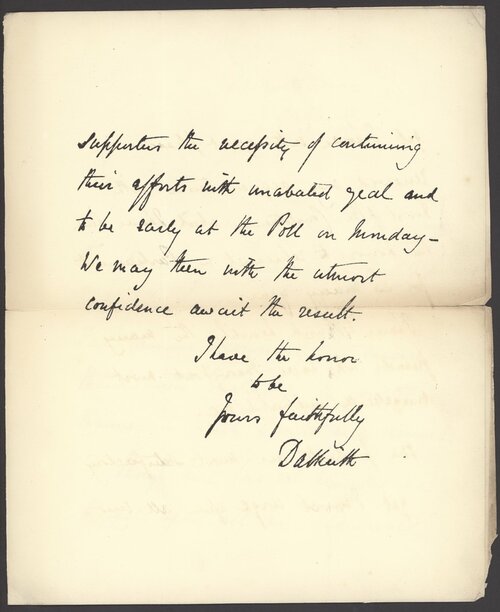 supporters the necessity of continuing
their efforts with unabated zeal and
to be early at the Poll on Monday—
We may then with the utmost
confidence await the result.
I have the honor
to be
Yours faithfully
Dalkeith